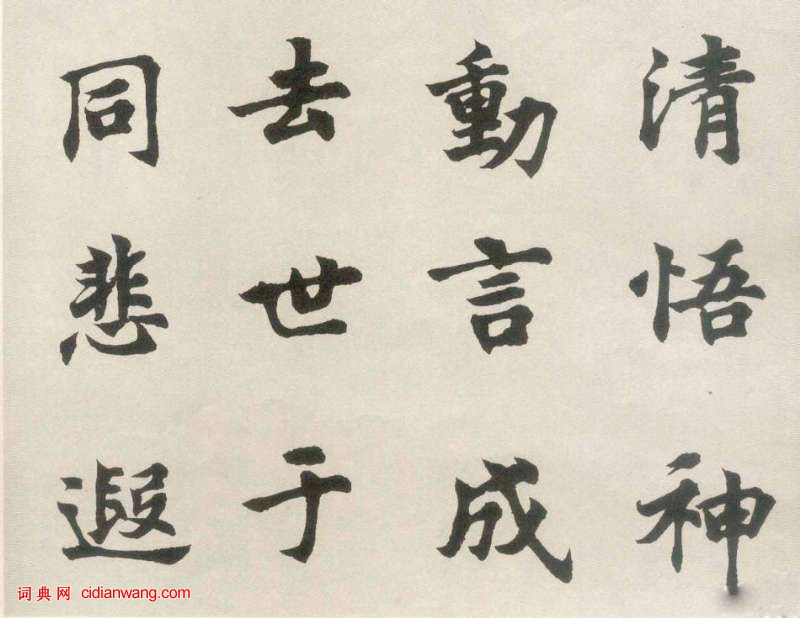 清悟神
動言成
去世于
同悲遐
词典网 cidianwang.com